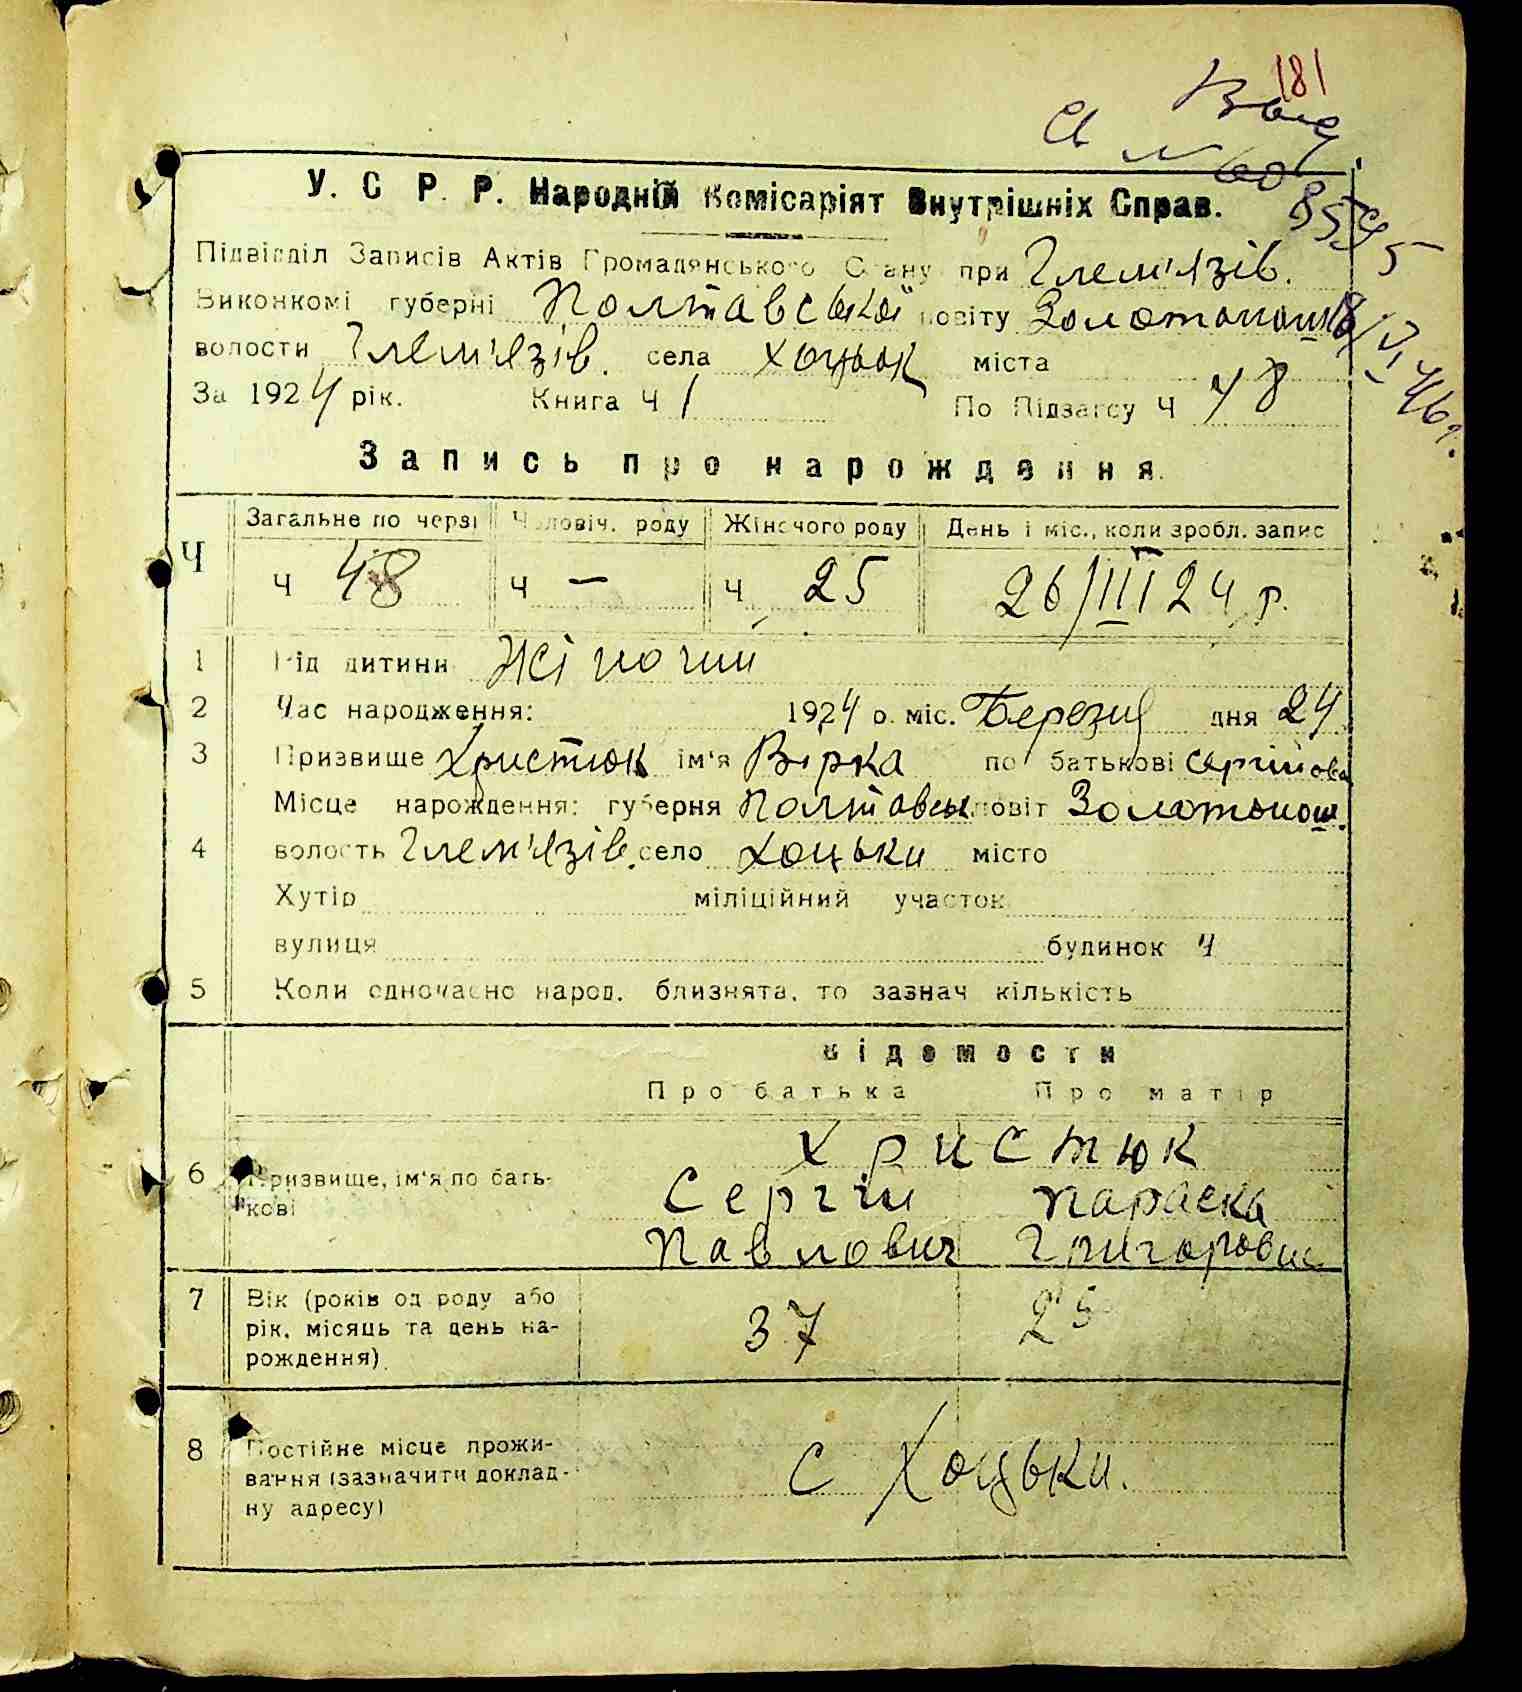 181
Выд
У. С Р. Р. Народній Комісаріят Внутрішніх Справ.
Підвідділ Записів Актів Громадянського Стану при Глем'язів.
Виконкомі губерні Полтавської повіту Золотонош
волости Глем'язів. села Хоцьок міста
За 1924 рік. Книга Ч 1 По Підзагсу Ч 48
Запись про нарождення.
Ч Загальне по черзі Чоловіч. роду Жіночого роду День і міс., коли зробл. запис
Ч 48 Ч — Ч 25 26/III 24 р.
1 Рід дитини Жіночий
2 Час народження: 1924 о. міс. Березня дня 24
3 Призвище Христюк ім'я Вірка по батькові Сергійова
Місце нарождення: губерня Полтавськ повіт Золотонош.
4 волость Глем'язів. село Хоцьки місто
Хутір міліційний участок
вулиця будинок Ч
5 Коли одночасно народ. близнята, то зазнач кількість
Відомости
Про батька Про матір
Христюк
6 Призвище, ім'я по бать-
кові
Сергій Параска
Павлович Григоровна
7 Вік (років од роду або
рік, місяць та день на-
рождення)
37 25
8 Постійне місце прожи-
вання (зазначити доклад-
ну адресу)
с Хоцьки.